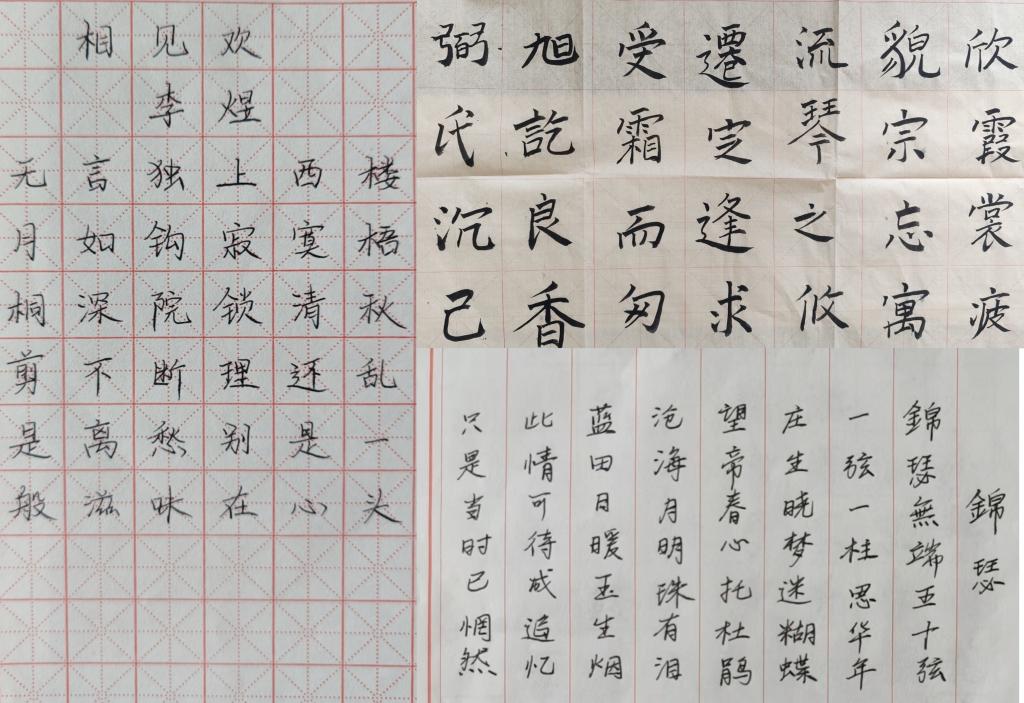 相见欢
李煜
无言独上西楼
月如钩寂寞梧
桐深院锁清秋
剪不断理还乱
是离愁别是一
般滋味在心头
弼旭受遷流貌欣
氏訖霜定琴宗霞
沉良而逢之忘裳
己香匆求攸寓疲
錦瑟
錦瑟無端五十弦
一弦一柱思华年
庄生晓梦迷糊蝶
望帝春心托杜鹃
沧海月明珠有泪
蓝田日暖玉生烟
此情可待成追忆
只是当时已惘然